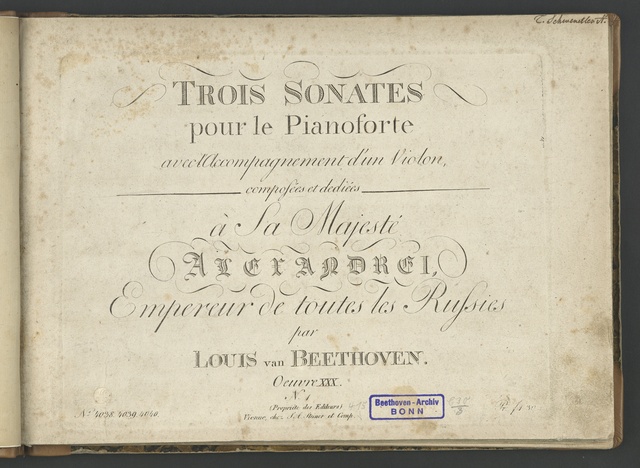 TROIS SONATES
pour le Pianoforte
avec l'Accompagnement d'un Violon,
composées et dediées
à Sa Majesté
ALEXANDRE I,
Empereur de toutes les Russies
par
LOUIS van BEETHOVEN.
Oeuvre XXX.
N. 1
(Proprieté des Editeurs)
Beethoven-Archiv
BONN
N.º 4038. 4039. 4040.
Vienne, chez
et Comp.